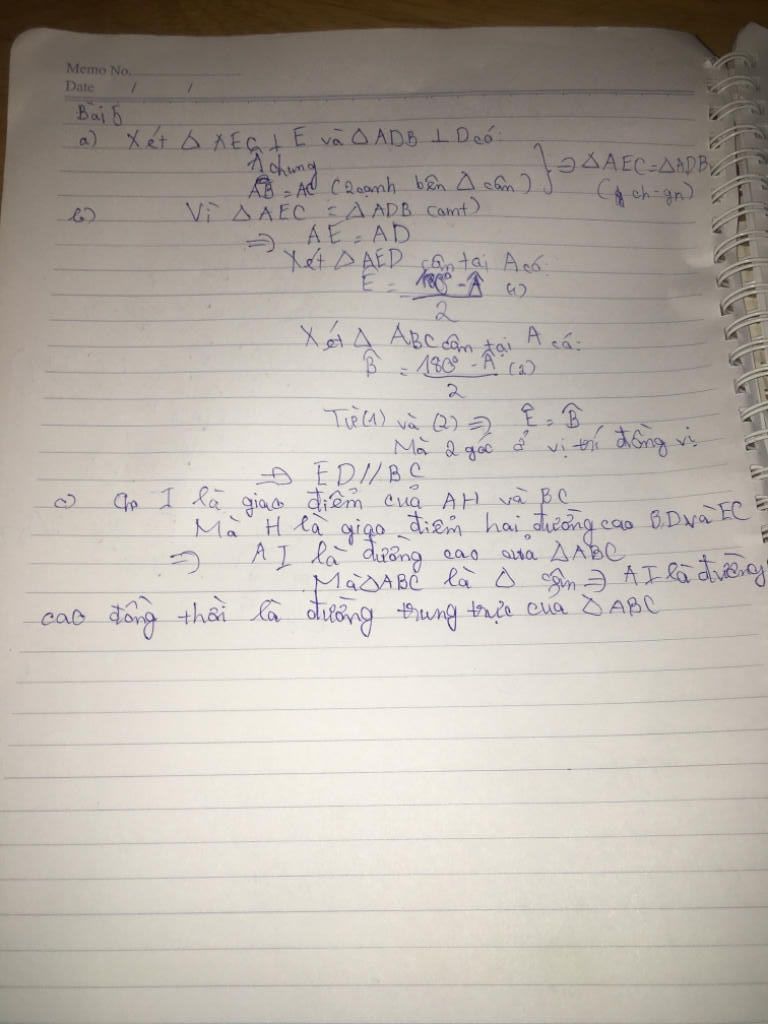 Memo No.
Date / /
Bài 5
a) Xét Δ AEC ⊥ E và Δ ADB ⊥ D có:
Â chung
AB = AC (2 cạnh bên Δ cân)
⇒ ΔAEC = ΔADB
(ch-gn)
b) Vì ΔAEC = ΔADB (cmt)
⇒ AE = AD
Xét ΔAED cân tại A có:
Ê = (180° - Â)/2 (1)
Xét Δ ABC cân tại A có:
B̂ = (180° - Â)/2 (2)
Từ (1) và (2) ⇒ Ê = B̂
Mà 2 góc ở vị trí đồng vị
⇒ ED // BC
c) I là giao điểm của AH và BC
Mà H là giao điểm hai đường cao BD và EC
⇒ AI là đường cao của ΔABC
Mà ΔABC là Δ cân ⇒ AI là đường
cao đồng thời là đường trung trực của ΔABC